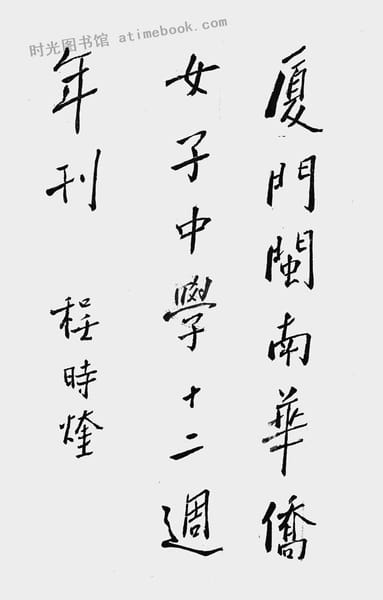 时光图书馆 atimebook.com
厦門閩南華僑
女子中學十二週
年刊 程時煃